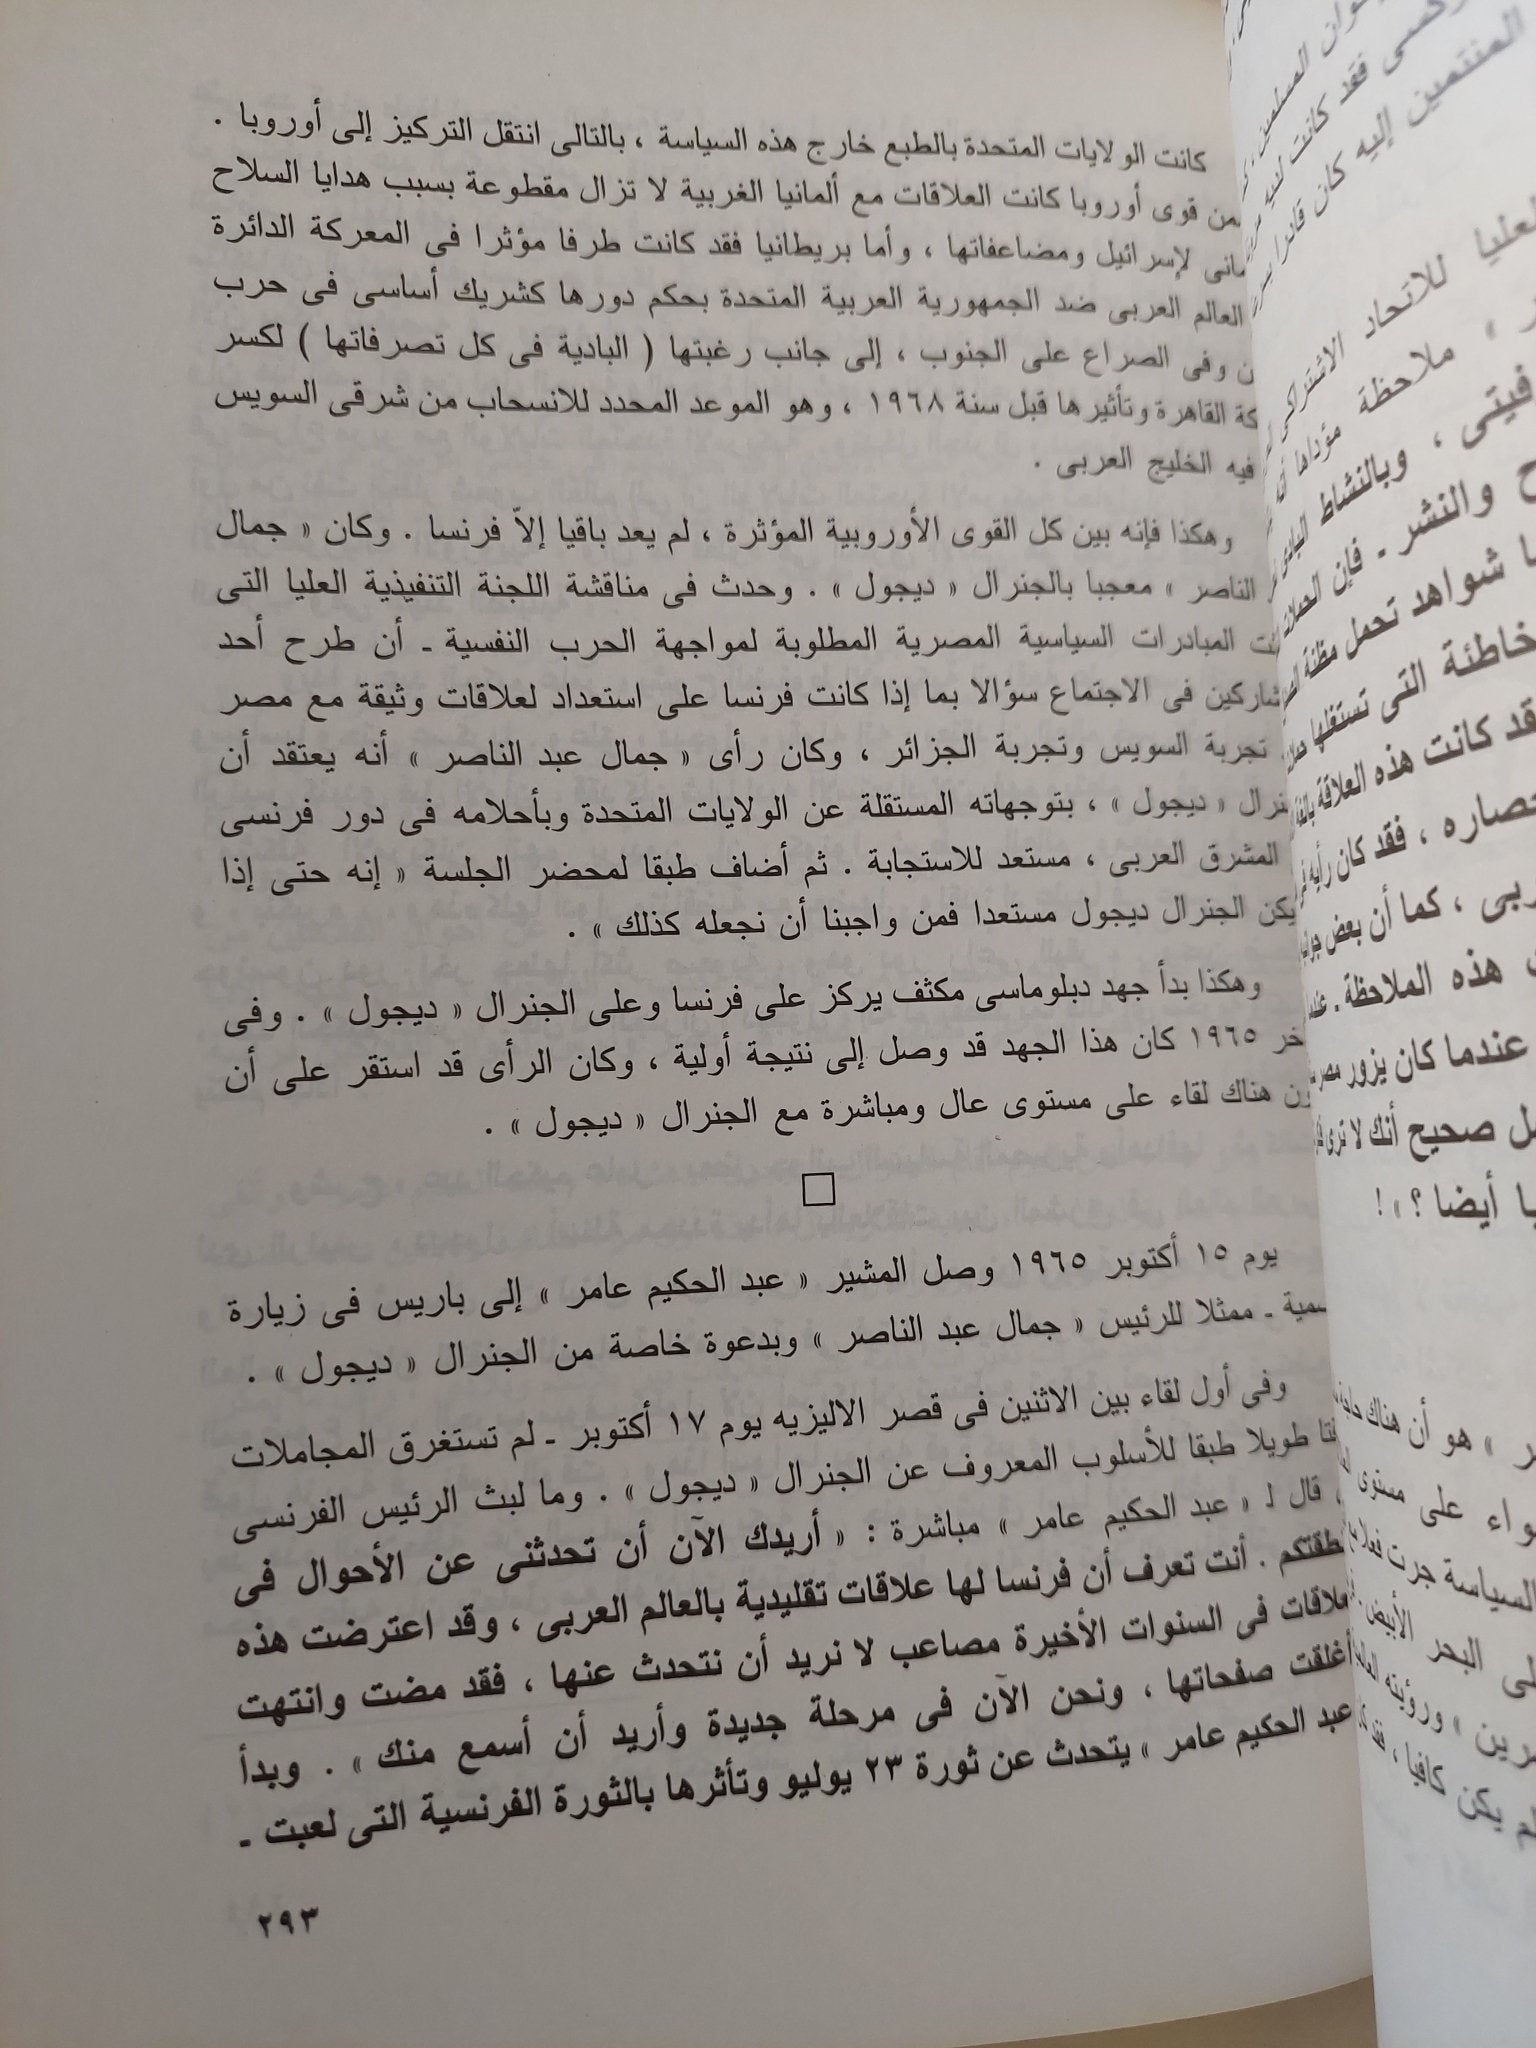 كانت الولايات المتحدة بالطبع خارج هذه السياسة ، بالتالى انتقل التركيز إلى أوروبا .
من قوى أوروبا كانت العلاقات مع ألمانيا الغربية لا تزال مقطوعة بسبب هدايا السلاح
لإسرائيل ومضاعفاتها ، وأما بريطانيا فقد كانت طرفا مؤثرا فى المعركة الدائرة
العالم العربى ضد الجمهورية العربية المتحدة بحكم دورها كشريك أساسى فى حرب
وفى الصراع على الجنوب ، إلى جانب رغبتها ( البادية فى كل تصرفاتها ) لكسر
القاهرة وتأثيرها قبل سنة ١٩٦٨ ، وهو الموعد المحدد للانسحاب من شرقى السويس
فيه الخليج العربى .
وهكذا فإنه بين كل القوى الأوروبية المؤثرة ، لم يعد باقيا إلاّ فرنسا . وكان « جمال
الناصر » معجبا بالجنرال « ديجول » . وحدث فى مناقشة اللجنة التنفيذية العليا التى
المبادرات السياسية المصرية المطلوبة لمواجهة الحرب النفسية ـ أن طرح أحد
فى الاجتماع سؤالا بما إذا كانت فرنسا على استعداد لعلاقات وثيقة مع مصر
تجربة السويس وتجربة الجزائر ، وكان رأى « جمال عبد الناصر » أنه يعتقد أن
« ديجول » ، بتوجهاته المستقلة عن الولايات المتحدة وبأحلامه فى دور فرنسى
المشرق العربى ، مستعد للاستجابة . ثم أضاف طبقا لمحضر الجلسة « إنه حتى إذا
يكن الجنرال ديجول مستعدا فمن واجبنا أن نجعله كذلك » .
وهكذا بدأ جهد دبلوماسى مكثف يركز على فرنسا وعلى الجنرال « ديجول » . وفى
١٩٦٥ كان هذا الجهد قد وصل إلى نتيجة أولية ، وكان الرأى قد استقر على أن
هناك لقاء على مستوى عال ومباشرة مع الجنرال « ديجول » .
يوم ١٥ أكتوبر ١٩٦٥ وصل المشير « عبد الحكيم عامر » إلى باريس فى زيارة
ـ ممثلا للرئيس « جمال عبد الناصر » وبدعوة خاصة من الجنرال « ديجول » .
وفى أول لقاء بين الاثنين فى قصر الاليزيه يوم ١٧ أكتوبر ـ لم تستغرق المجاملات
طويلا طبقا للأسلوب المعروف عن الجنرال « ديجول » . وما لبث الرئيس الفرنسى
، قال لـ « عبد الحكيم عامر » مباشرة : « أريدك الآن أن تحدثنى عن الأحوال فى
. أنت تعرف أن فرنسا لها علاقات تقليدية بالعالم العربى ، وقد اعترضت هذه
فى السنوات الأخيرة مصاعب لا نريد أن نتحدث عنها ، فقد مضت وانتهت
أغلقت صفحاتها ، ونحن الآن فى مرحلة جديدة وأريد أن أسمع منك » . وبدأ
عبد الحكيم عامر » يتحدث عن ثورة ٢٣ يوليو وتأثرها بالثورة الفرنسية التى لعبت ـ
٢٩٣
المنتمين إليه كان
للاتحاد الاشتراكى
» ملاحظة مؤداها أنه
، وبالنشاط
والنشر ـ فإن الحملات
شواهد تحمل مظنة
خاطئة التى تستغلها
قد كانت هذه العلاقة
، فقد كان رأيه
، كما أن بعض
هذه الملاحظة ـ
عندما كان يزور مصر
صحيح أنك لا ترى
أيضا ؟ » !
» هو أن هناك
على مستوى
السياسة جرت
البحر الأبيض
» ورؤيته
يكن كافيا ،